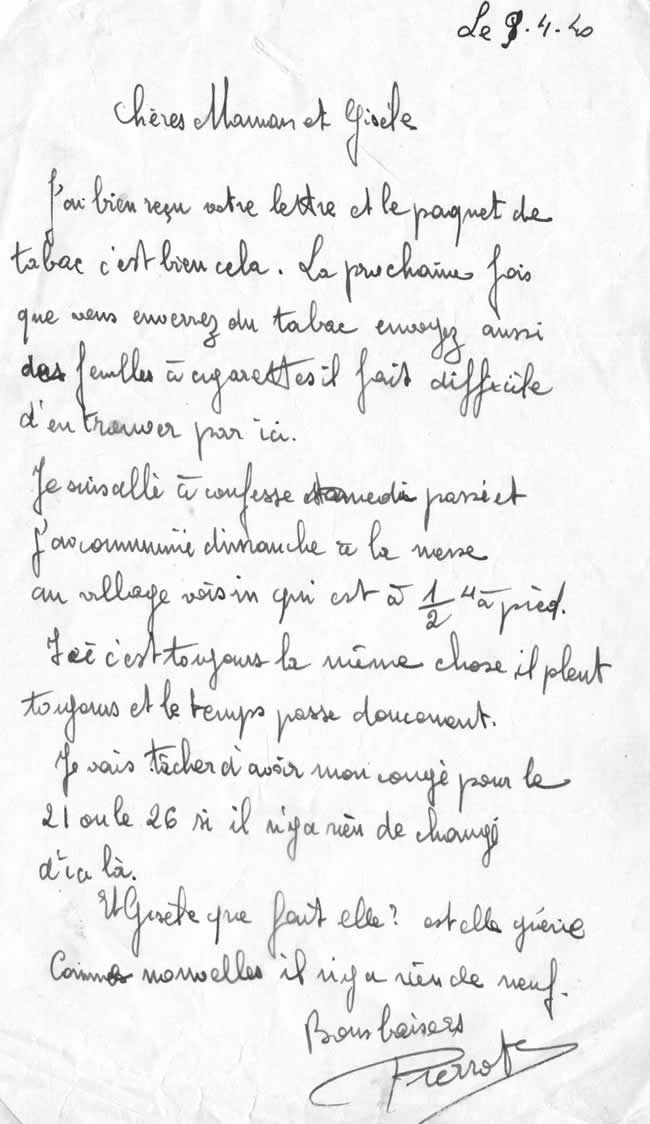 Le 9.4.40
Chères Maman et Gisèle
J'ai bien reçu votre lettre et le paquet de
tabac c'est bien cela. La prochaine fois
que vous enverrez du tabac envoyez aussi
des feuilles à cigarettes il fait difficile
d'en trouver par ici.
Je suis allé à confesse samedi passé et
j'ai communié dimanche à la messe
au village voisin qui est à 1/2 H à pied.
Ici c'est toujours la même chose il pleut
toujours et le temps passe doucement.
Je vais tâcher d'avoir mon congé pour le
21 ou le 26 si il n'y a rien de changé
d'ici là.
Et Gisèle que fait elle? est elle guérie
Comme nouvelles il n'y a rien de neuf.
Bons baisers
Pierrot